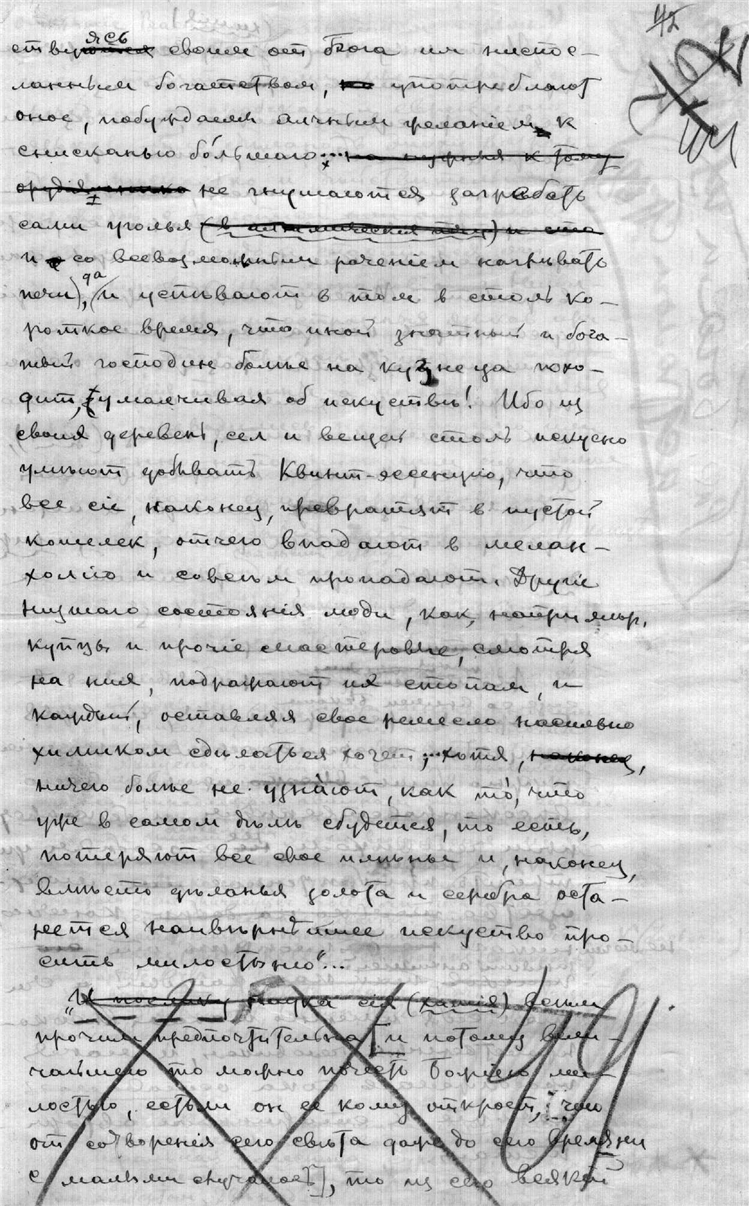 45
ствуясь своим от Бога им ниспо-
сланным богатством, употребляют
оное, побуждаемы алчным желанием к
снисканью бо́льшаго... на нужныя к тому
орудія не гнушаются загребать
сами уголья (в алхимическия печи) и
и со всевозможным рачением нагревать
печи), да и успевают в том в столь ко-
роткое время, что иной знатный и бога-
тый господин болье на кузнеца похо-
дит, умалчивая об искустве! Ибо из
своих деревень, сел и вещей столь искусно
умеют добывать Квинт-эссенцию, что
все сіе, наконец, превратят в пустой
кошелек, отчего впадают в мелан-
холію и совсем пропадают. Другіе
низшаго состоянія люди, как, например,
купцы и прочіе мастеровые, смотря
на них, подражают их стопам, и
каждый, оставляя свое ремесло насильно
химиком сделаться хочет;... хотя, наконец,
ничего болье не узна́ют, как то́, что
уже в самом деле сбудется, то есть,
потеряют все свое именье и, наконец,
вместо деланья золота и серебра оста-
нется наивернейшее искуство про-
сить милостыню"...
"И поелику наука сія (химія) всем
прочим предпочтительна [и потому вели-
чайшею то можно почесть Божіею ми-
лостью, естьли он ее кому откроет, что
от сотворенія сего света даже до сего времяни
с малыми случалось], то из сего всякій